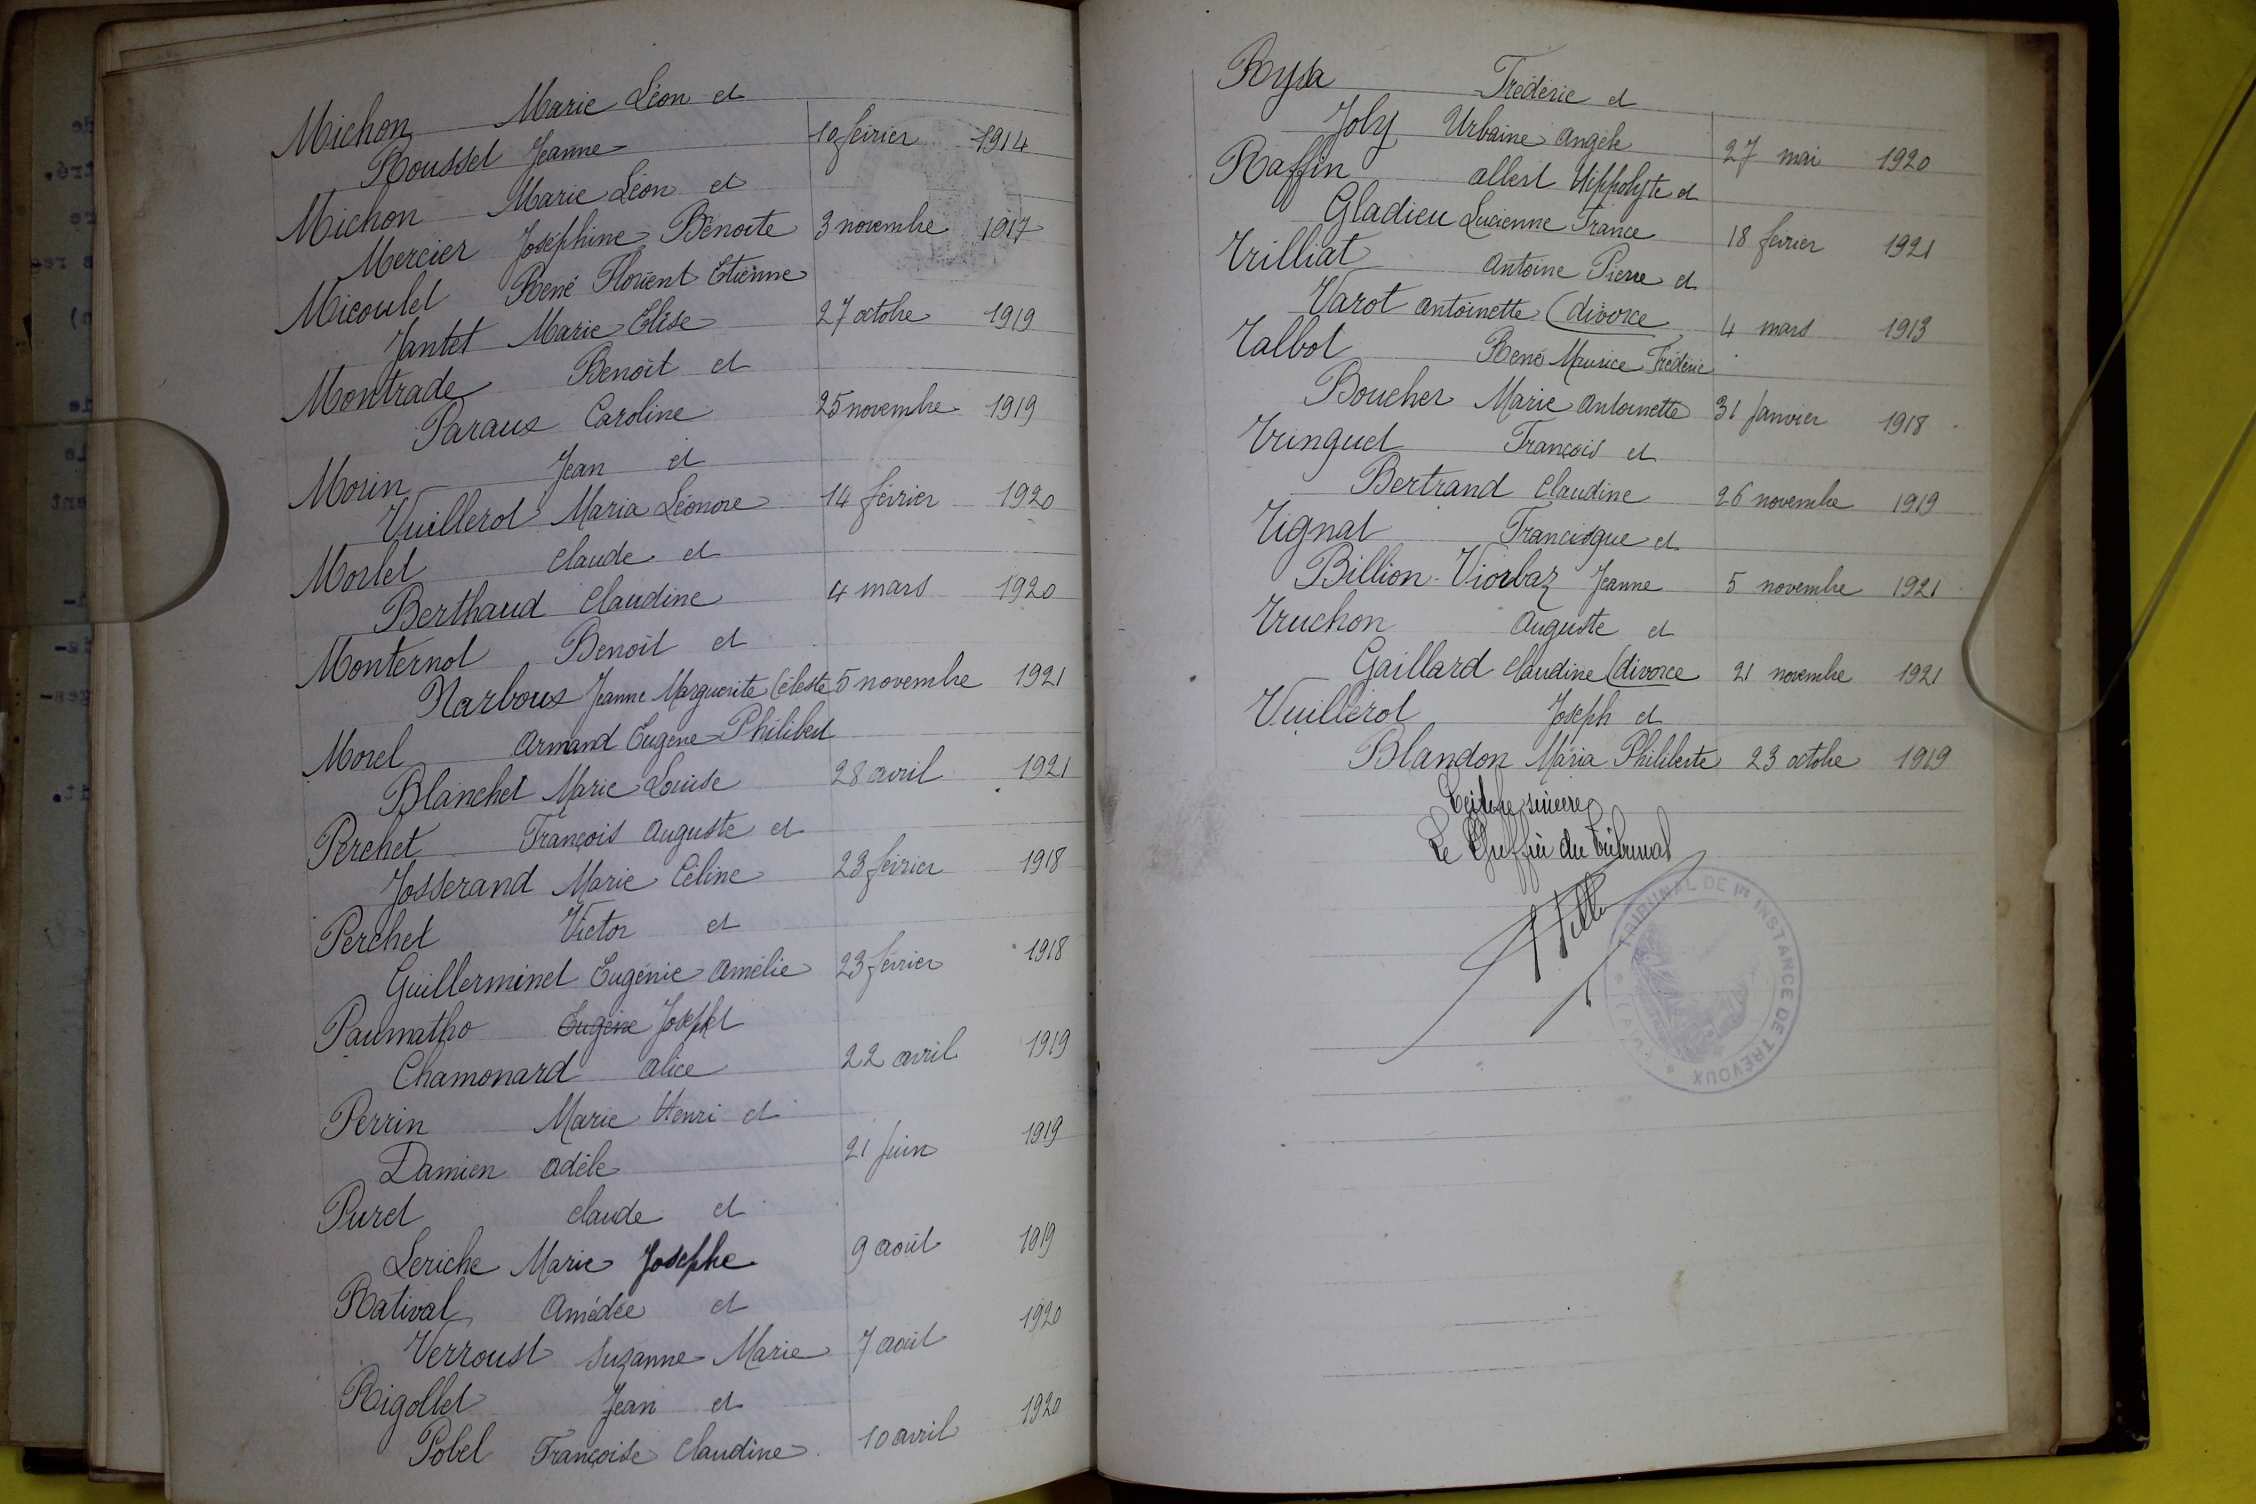 Michon Marie Léon et
Roussel Jeanne 10 février 1914
Michon Marie Léon et
Mercier Joséphine Bénoite 3 novembre 1917
Micoulet René Florient Etienne
Jantet Marie Elise 27 octobre 1919
Montrade Benoit et
Paraux Caroline 25 novembre 1919
Morin Jean et
Vuillerot Maria Léonore 14 février 1920
Morlet Claude et
Berthaud Claudine 4 mars 1920
Monternot Benoit et
Narboux Jeanne Marguerite Céleste 5 novembre 1921
Morel Armand Eugène Philibert
Blanchet Marie Louise 28 avril 1921
Perchet François Auguste et
Josserand Marie Céline 23 février 1918
Perchet Victor et
Guillerminet Eugénie Amélie 23 février 1918
Paumatho Eugène Joseph et
Chamonard Alice 22 avril 1919
Perrin Marie Henri et
Damien Adèle 21 juin 1919
Puret Claude et
Leriche Marie Josephe 9 août 1919
Rativat Amédée et
Verroust Suzanne Marie 7 août 1920
Rigollet Jean et
Pobel Françoise Claudine 10 avril 1920
Frédéric et
Joly Urbaine Angèle 27 mai 1920
Raffin Albert Hippolyte et
Gladieu Lucienne France 18 février 1921
Trilliat Antoine Pierre et
Varot Antoinette (divorce 4 mars 1913
Talbot René Maurice Frédéric
Boucher Marie Antoinette 31 Janvier 1918
Tringuet François et
Bertrand Claudine 26 novembre 1919
Tignat Francisque et
Billion-Viorbaz Jeanne 5 novembre 1921
Truchon Auguste et
Gaillard Claudine (divorce 21 novembre 1921
Vuillerot Joseph et
Blandon Maria Philiberte 23 octobre 1919
sincère
Le Greffier du Tribunal
TRIBUNAL DE 1re INSTANCE DE TREVOUX * (AIN) *